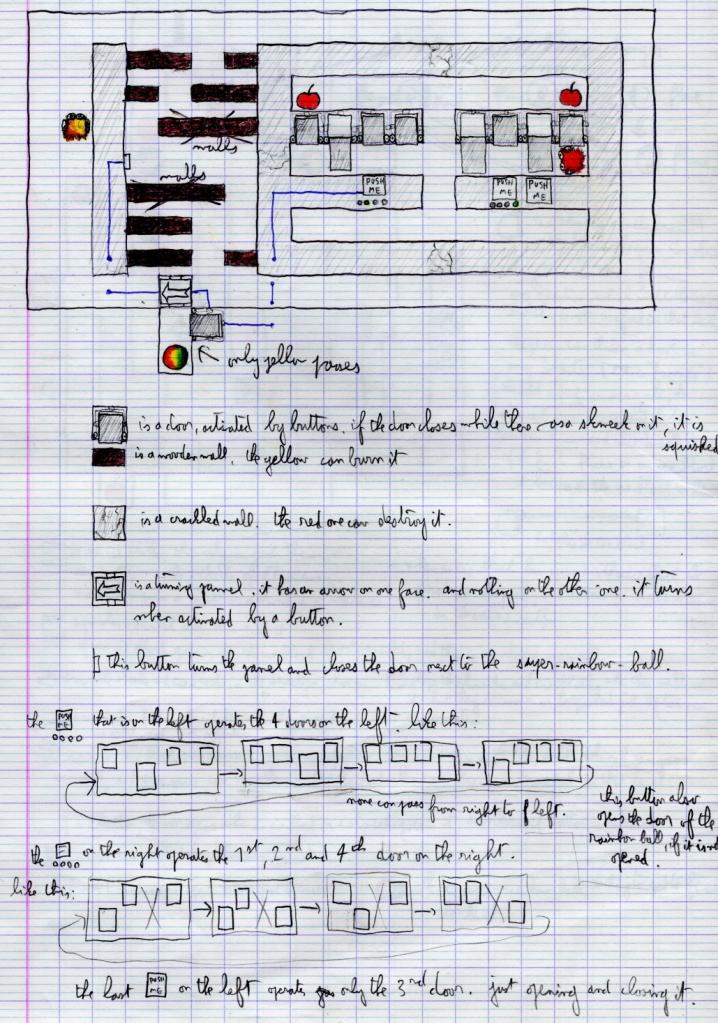 walls
walls
PUSH ME
PUSH ME
PUSH ME
only yellow passes
is a door, activated by buttons. if the door closes while there was a shmeek on it, it is squished
is a wooden wall. the yellow can burn it
is a crackled wall. the red one can destroy it.
is a turning pannel. it has an arrow on one face. and nothing on the other one. it turns
when activated by a button.
this button turns the panel and closes the door next to the super-rainbow-ball.
the PUSH ME that is on the left operates the 4 doors on the left. like this:
none can pass from right to left.
this button also
opens the door of the
rainbow ball, if it is not
opened.
the on the right operates the 1st, 2nd and 4th door on the right.
like this:
the last PUSH ME on the left operates only the 3rd door. just opening and closing it.